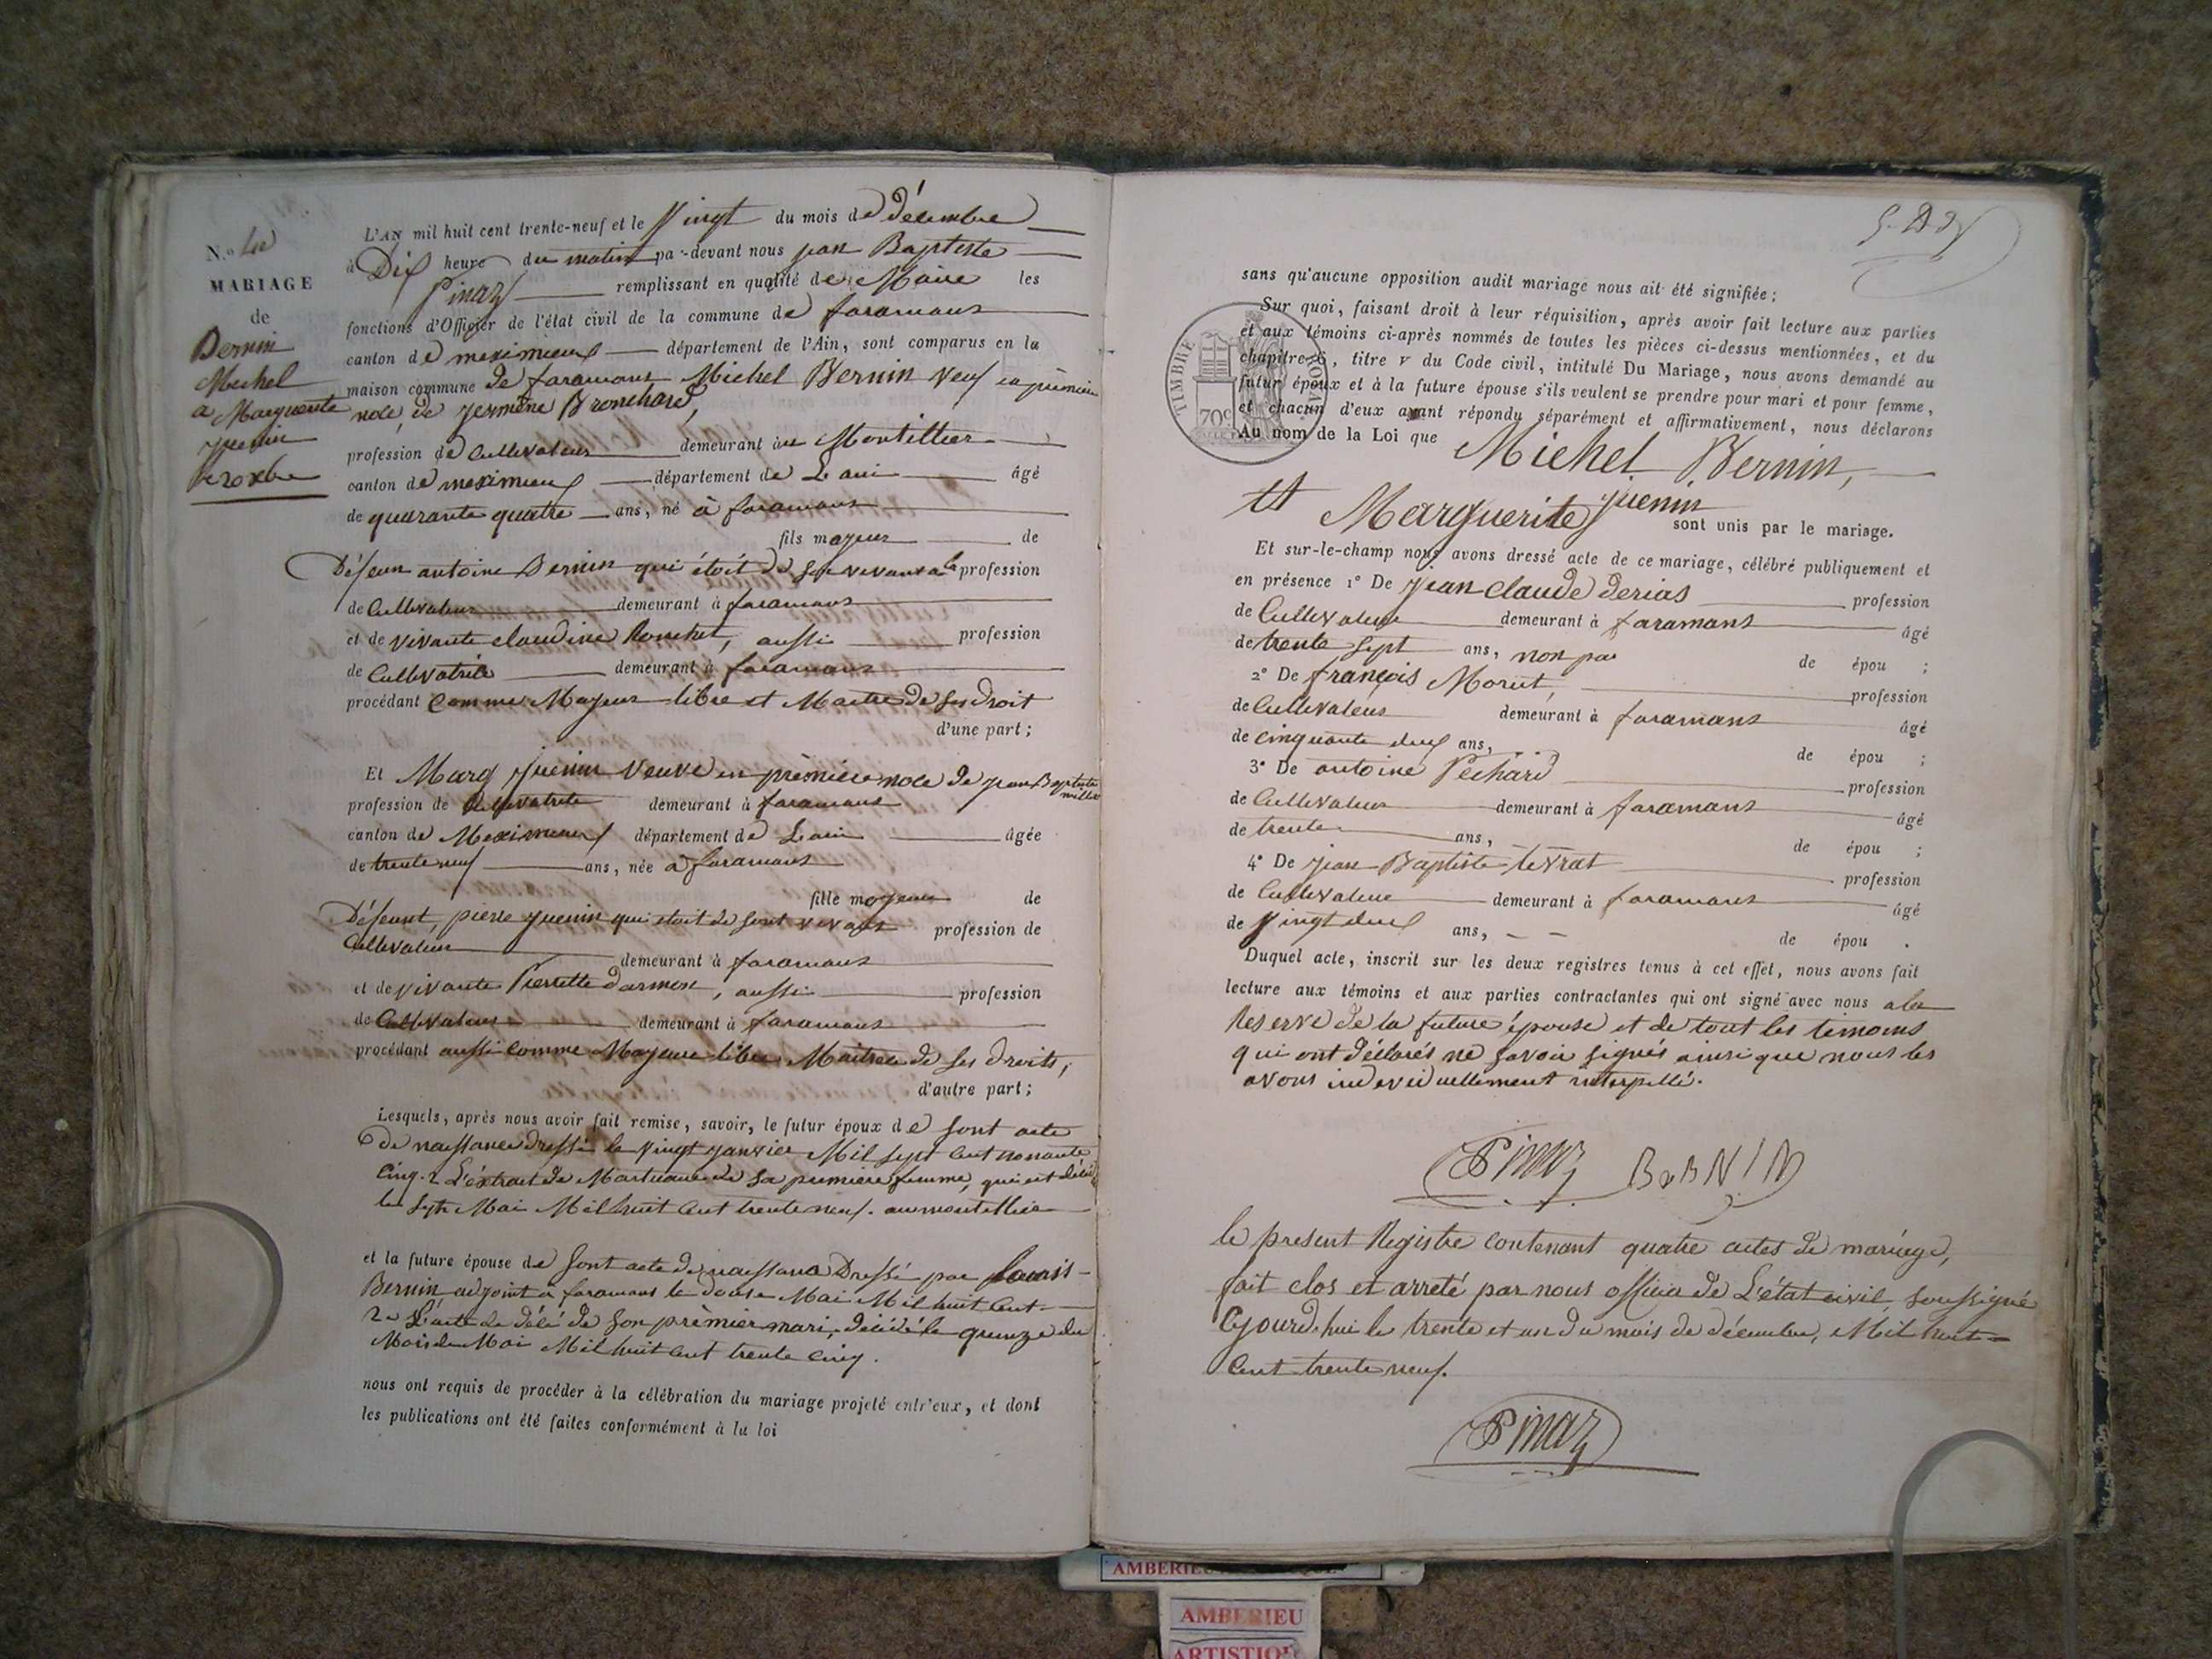 N.o 4e
MARIAGE
de
Bernin
Michel
a Marguerite
juenin
L'AN mil huit cent trente-neuf et le Vingt du mois de décembre
à Dix heure du matin pa-devant nous jean Baptiste
Pinaz remplissant en qualité de Maire les
fonctions d'Officier de l'état civil de la commune de faramans
canton de meximieux département de l'Ain, sont comparus en la
maison commune de faramans Michel Bernin veuf en premiere
noce, de jermene Bronchard,
profession de Cultivateur demeurant au Montillier
canton de meximieux département de L'ain âgé
de quarante quatre ans, né à faramans
fils majeur de
Défeun antoine Bernin qui étoit de son vivant a la profession
de Cultivateur demeurant à faramans
et de vivante claudine Ronchet, aussi profession
de Cultivatrice demeurant à faramans
procédant comme Majeur libre et Maitre de ses droit
d'une part;
Et Marg juenin veuve en première noce de jean Baptiste millet
profession de Cultivatrice demeurant à faramans
canton de Meximieux département de L'ain âgée
de trente neuf ans, née à faramans
fille majeure de
Défeunt, pierre juenin qui etoit de sont vivant profession de
Cultivateur demeurant à faramans
et de vivante Pierrette darmex, aussi profession
de Cultivateur demeurant à faramans
procédant aussi comme Majeure libre Maitresse de ses droits,
d'autre part;
Lesquels, après nous avoir fait remise, savoir, le futur époux de sont acte
de naissance dressé le vingt janvier Mil sept cent nonante
cinq. 2 L'éxtrait de Mortuaire de sa premiere femme, qui est décédé
le sept Mai Mil huit cent trente neuf. au montellier
et la future épouse de sont acte de naissance Dressé par Louis
Bernin adjoint à faramans le douse Mai Mil huit Cent
2e L'acte de décé de son prèmier mari, décédé le quinze du
Mois de Mai Mil huit cent trente cinq.
nous ont requis de procéder à la célébration du mariage projeté entr'eux, et dont
les publications ont été faites conformément à la loi
sans qu'aucune opposition audit mariage nous ait été signifiée;
Sur quoi, faisant droit à leur réquisition, après avoir fait lecture aux parties
et aux témoins ci-après nommés de toutes les pièces ci-dessus mentionnées, et du
chapitre 6, titre v du Code civil, intitulé Du Mariage, nous avons demandé au
futur époux et à la future épouse s'ils veulent se prendre pour mari et pour femme,
et chacun d'eux ayant répondu séparément et affirmativement, nous déclarons
Au nom de la Loi que Michel Bernin,
TIMBRE ROYAL
70c
et Marguerite juenin
sont unis par le mariage.
Et sur-le-champ nous avons dressé acte de ce mariage, célébré publiquement et
en présence 1° De jean claude derias profession
de Cultivateur demeurant à faramans âgé
de trente sept ans, non par de épou ;
2° De françois Moret, profession
de Cultivateur demeurant à faramans âgé
de cinquante deux ans, de épou ;
3° De antoine Pechard profession
de Cultivateur demeurant à faramans âgé
de trente ans, de épou ;
4° De jean Baptiste levrat profession
de Cultivateur demeurant à faramans âgé
de vingt deux ans, de épou .
Duquel acte, inscrit sur les deux registres tenus à cet effet, nous avons fait
lecture aux témoins et aux parties contractantes qui ont signé avec nous a la
Reserve de la future épouse et de tout les temoins
qui ont déclarés ne savoir signés ainsi que nous les
avons individuellement interpellé.
Pinaz BERNIN
le present Registre contenant quatre actes de mariage,
fait clos et arreté par nous officier de L'état civil, soussigné
Cejourd'hui le trente et un du mois de décembre, Mil huit
Cent trente neuf.
Pinaz
AMBERIEU
ARTISTIQUE